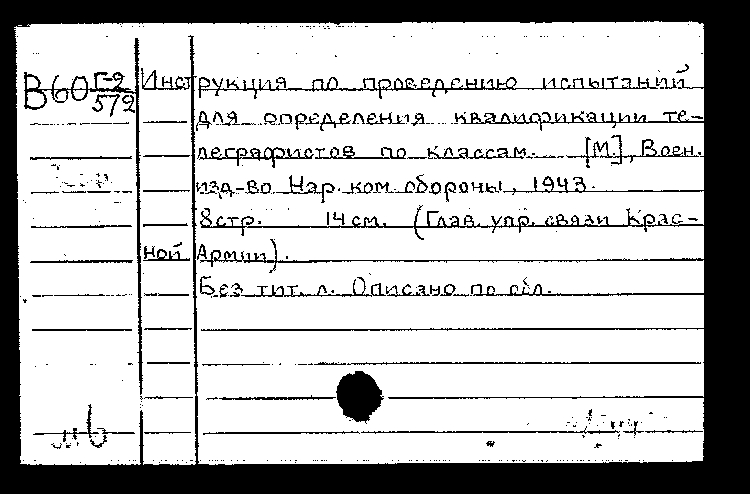 В60 Г-9
572
Инструкция по проведению испытаний
для определения квалификации те-
леграфистов по классам. [М.], Воен.
изд-во Нар. ком. обороны, 1943.
8 стр. 14 см. (Глав. упр. связи Крас-
ной Армии).
Без тит. л. Описано по обл.
мб